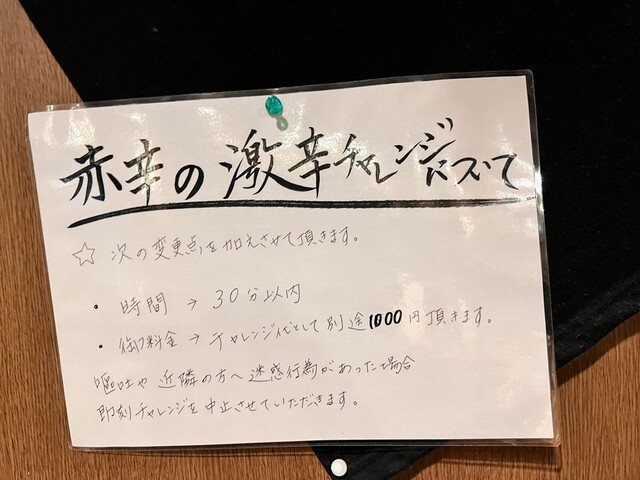 赤辛の激辛チャレンジについて
☆ 次の変更点を加えさせて頂きます。
・ 時間 → 30分以内
・ 御料金 → チャレンジ代として別途1000円頂きます。
嘔吐や近隣の方へ迷惑行為があった場合
即刻チャレンジを中止させていただきます。